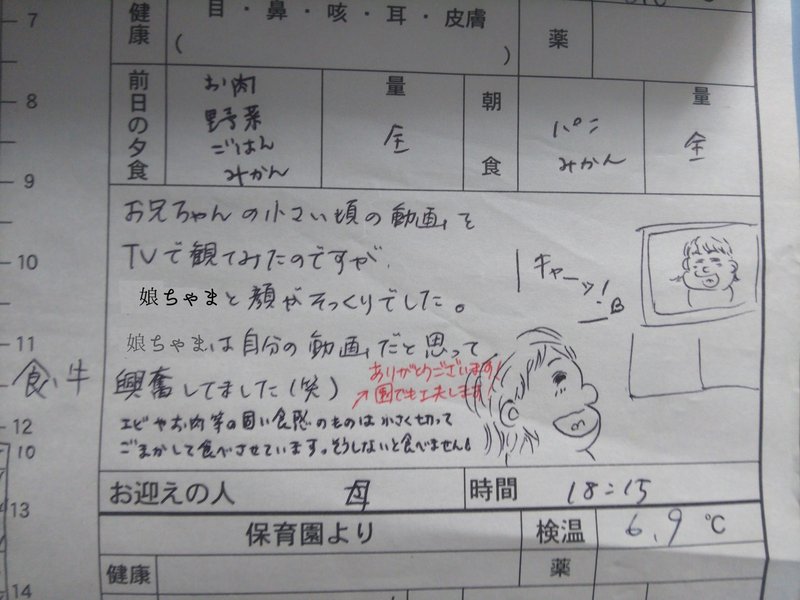 7
健康
目・鼻・咳・耳・皮膚
( )
薬
8
9
前日の夕食
お肉
野菜
ごはん
みかん
量
全
朝食
パン
みかん
量
全
お兄ちゃんの小さい頃の動画を
TVで観てみたのですが、
娘ちゃまと顔がそっくりでした。
娘ちゃまは自分の動画だと思って
興奮してました(笑)
キャーッ!
ありがとうございます!
↗園でも工夫します
エビやお肉等の固い食感のものは小さく切って
ごまかして食べさせています。そうしないと食べません!
10
11
食、牛
12
10
13
14
お迎えの人
母
時間
18:15
保育園より
検温
6.9℃
健康
薬